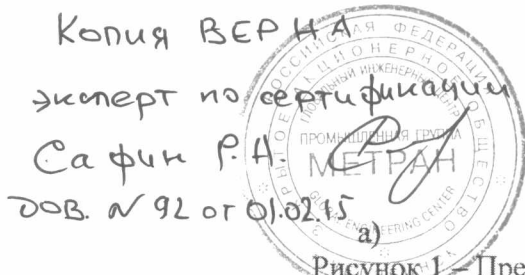 Копия ВЕРНА
эксперт по сертификации
Сафин Р.А.
ДОВ. N 92 от 01.02.15
РОССИЙСКАЯ ФЕДЕРАЦИЯ
АКЦИОНЕРНОЕ ОБЩЕСТВО
ГЛОБАЛЬНЫЙ ИНЖЕНЕРНЫЙ ЦЕНТР
ПРОМЫШЛЕННАЯ ГРУППА
МЕТРАН
ENGINEERING CENTER
а)
Рисунок 1 – Пре